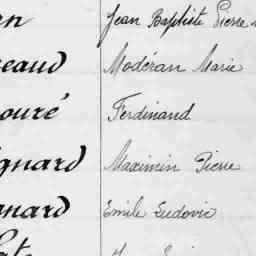 en Jean Baptiste Pierre
eaud Modéran Marie
ouré Ferdinand
gnard Maximin Pierre
gnard Emile Ludovic